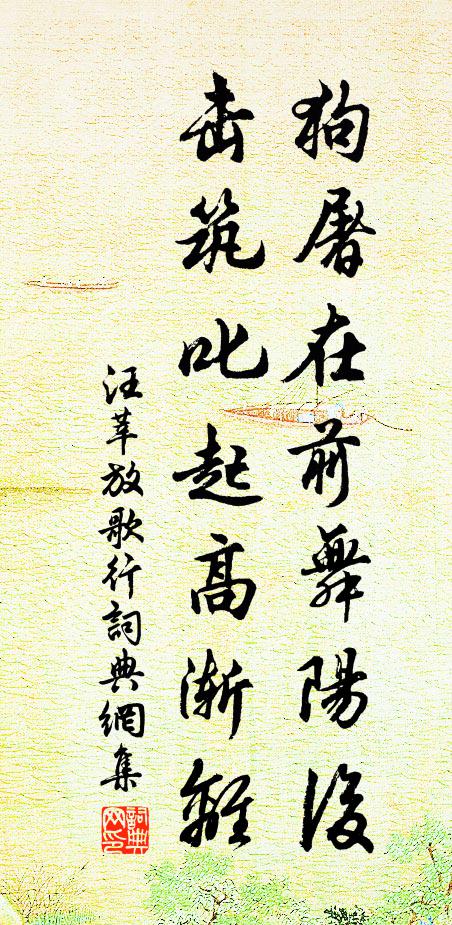 狗屠在前舞陽後
击筑叱起高渐離
汪莘放歌行詞典網集
詞典网印